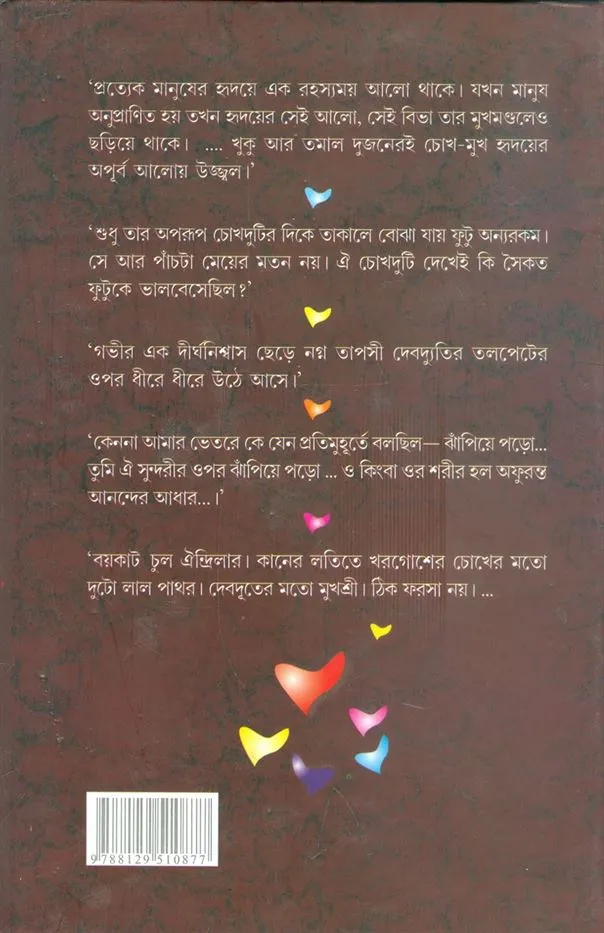 ‘প্রত্যেক মানুষের হৃদয়ে এক রহস্যময় আলো থাকে। যখন মানুষ
অনুপ্রাণিত হয় তখন হৃদয়ের সেই আলো, সেই বিভা তার মুখমণ্ডলেও
ছড়িয়ে থাকে। .... খুকু আর তমাল দুজনেরই চোখ-মুখ হৃদয়ের
অপূর্ব আলোয় উজ্জ্বল।’
‘শুধু তার অপরূপ চোখদুটির দিকে তাকালে বোঝা যায় ফুটু অন্যরকম।
সে আর পাঁচটা মেয়ের মতন নয়। ঐ চোখদুটি দেখেই কি সৈকত
ফুটুকে ভালবেসেছিল?’
‘গভীর এক দীর্ঘনিশ্বাস ছেড়ে নগ্ন তাপসী দেবদ্যুতির তলপেটের
ওপর ধীরে ধীরে উঠে আসে।’
‘কেননা আমার ভেতরে কে যেন প্রতিমুহূর্তে বলছিল— ঝাঁপিয়ে পড়ো...
তুমি ঐ সুন্দরীর ওপর ঝাঁপিয়ে পড়ো ... ও কিংবা ওর শরীর হল অফুরন্ত
আনন্দের আধার...।’
‘বয়কাট চুল ঐন্দ্রিলার। কানের লতিতে খরগোশের চোখের মতো
দুটো লাল পাথর। দেবদূতের মতো মুখশ্রী। ঠিক ফরসা নয়। ...
9788129510877